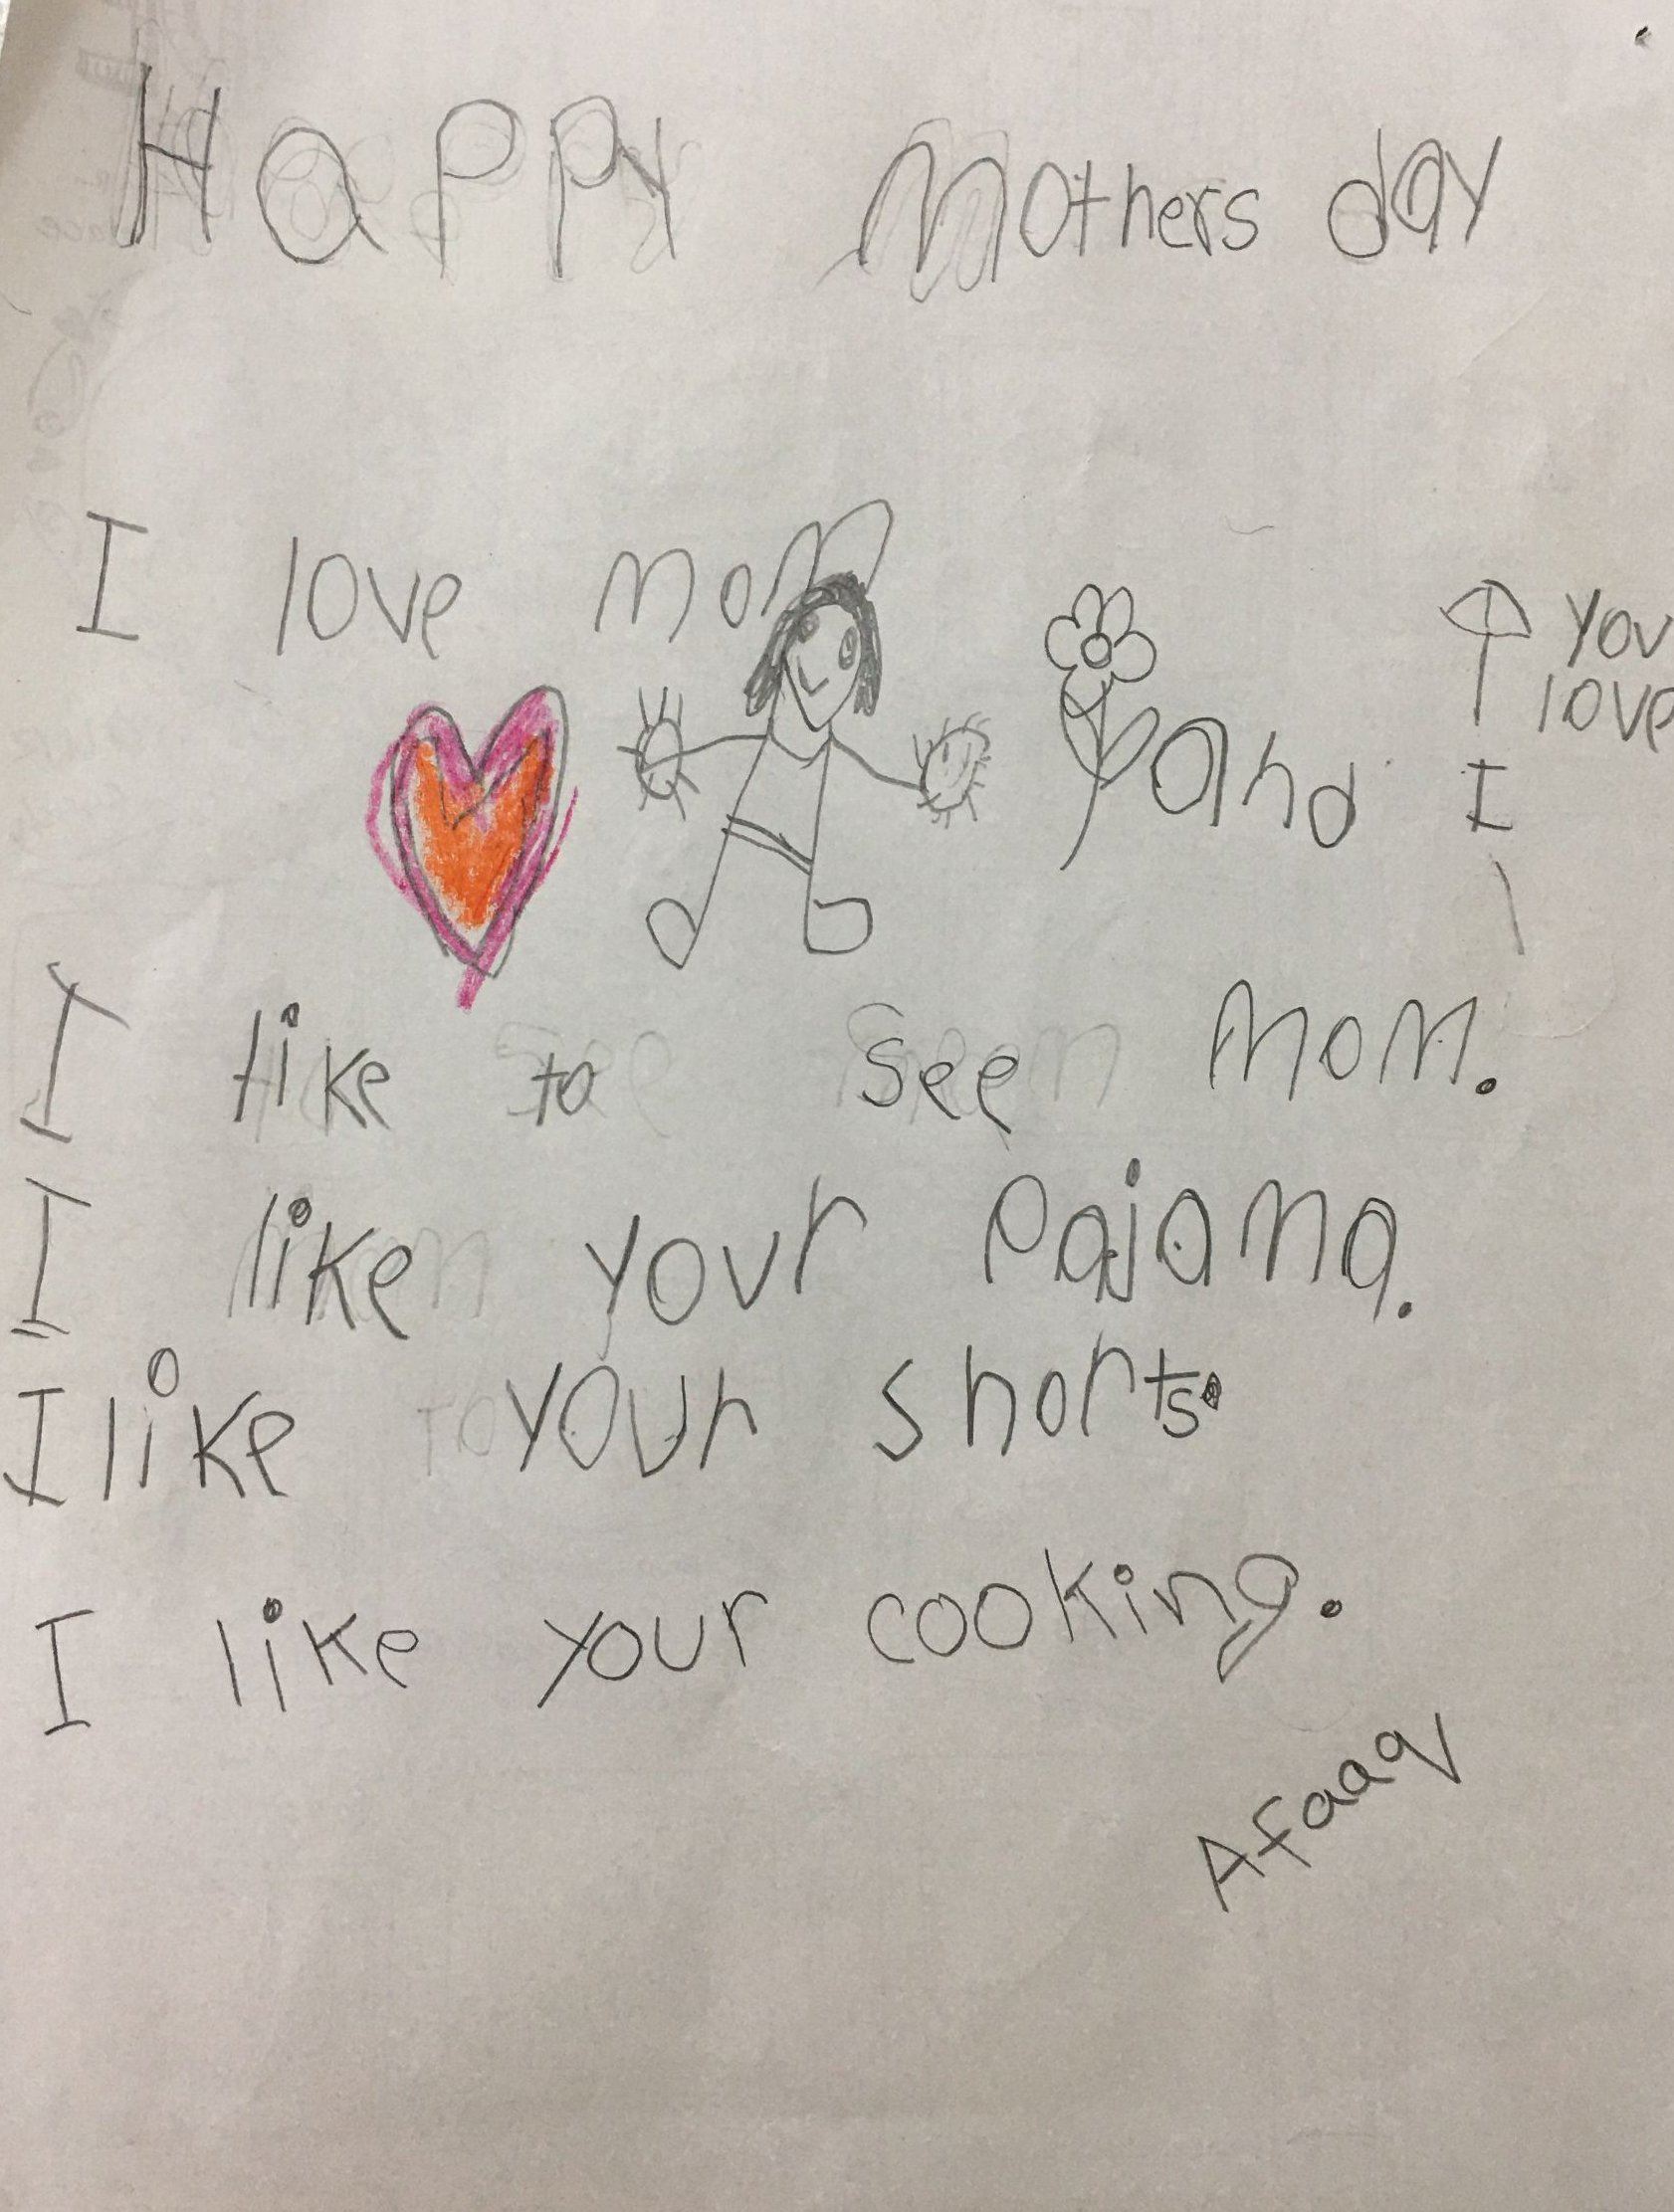 Happy Mothers day
I love mom
and I
you
love
I like to see mom.
I like your Pajama.
I like your shorts.
I like your cooking.
Afaaq